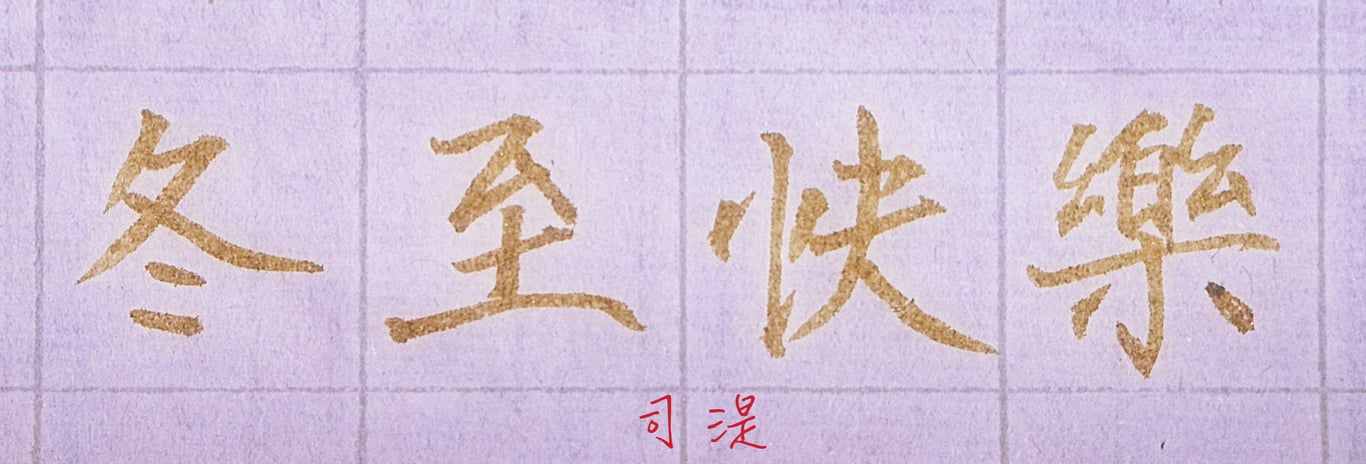 冬至快樂
司湜